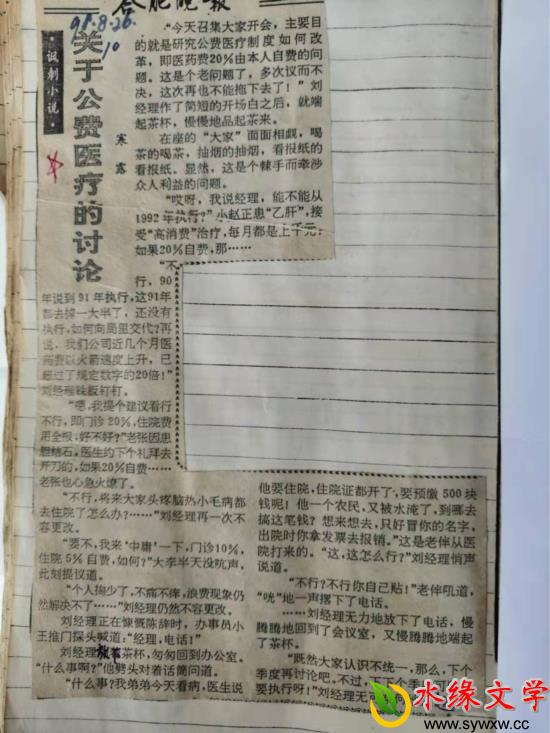 合肥晚报
91.8.26.
10
讽刺小说
关于公费医疗的讨论
寒露
“今天召集大家开会，主要目
的就是研究公费医疗制度如何改
革，即医药费20%由本人自费的问
题。这是个老问题了，多次议而不
决，这次再也不能拖下去了！”刘
经理作了简短的开场白之后，就端
起茶杯，慢慢地品起茶来。
在座的“大家”面面相觑，喝
茶的喝茶，抽烟的抽烟，看报纸的
看报纸。显然，这是个棘手而牵涉
众人利益的问题。
“哎呀，我说经理，能不能从
1992年执行？”小赵正患“乙肝”，接
受“高消费”治疗，每月都是上千元，
如果20%自费，那……
“不
行，90
年说到91年执行，这91年
都去掉一大半了，还没有
执行，如何向局里交代？再
说，我们公司近几个月医
药费以火箭速度上升，已
超过了规定数字的20倍！”
刘经理铁板钉钉。
“嗯，我提个建议看行
不行，即门诊20%，住院费
用全报，好不好？”老张因患
胆结石，医生约下个礼拜去
开刀的，如果20%自费……
老张也心急火燎了。
“不行，将来大家头疼脑热小毛病都
去住院了怎么办？……”刘经理再一次不
容更改。
“要不，我来‘中庸’一下，门诊10%，
住院5%自费，如何？”大李半天没吭声，
此刻提议道。
“个人掏少了，不痛不痒，浪费现象仍
然解决不了……”刘经理仍然不容更改。
刘经理正在慷慨陈辞时，办事员小
王推门探头喊道：“经理，电话！”
刘经理放下茶杯，匆匆回到办公室。
“什么事啊？”他劈头对着话筒问道。
“什么事？我弟弟今天看病，医生说
他要住院，住院证都开了，要预缴500块
钱呢！他一个农民，又被水淹了，到哪去
搞这笔钱？想来想去，只好冒你的名字，
出院时你拿发票去报销。”这是老伴从医
院打来的。“这，这怎么行？”刘经理悄声
说道。
“不行？不行你自己贴！”老伴吼道，
“咣”地一声撂下了电话。
……刘经理无力地放下了电话，慢
腾腾地回到了会议室，又慢腾腾地端起
了茶杯。
“既然大家认识不统一，那么，下个
季度再讨论吧。不过，下下个季
要执行呀！”刘经理无
水缘文学
www.sywxw.cc